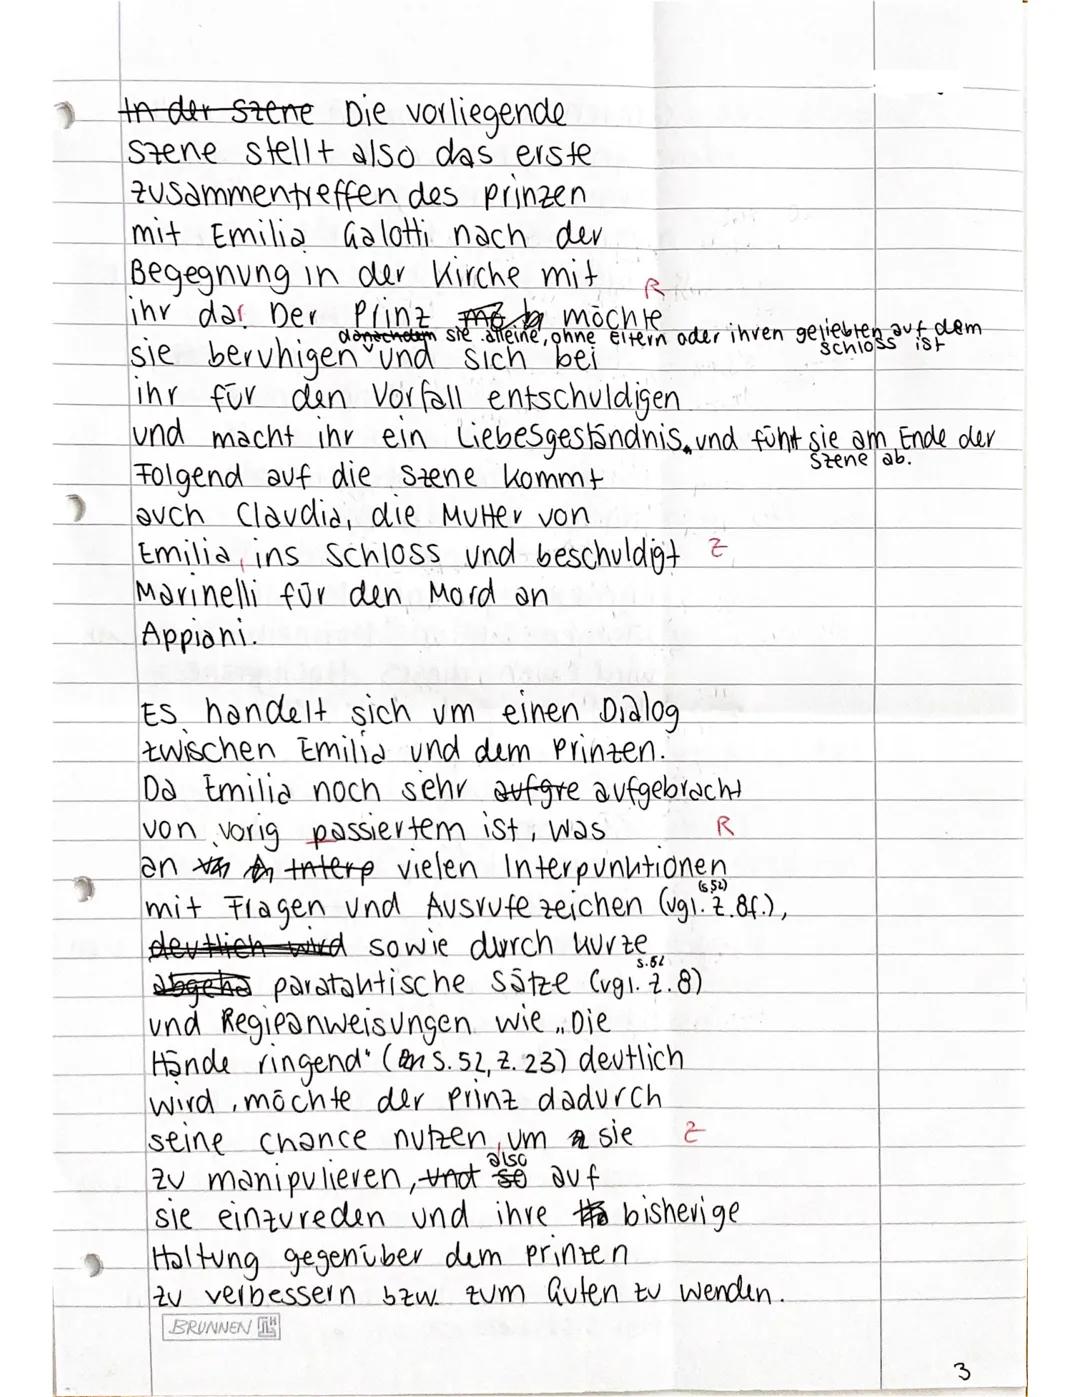 In der Szene Die vorliegende
Szene stellt also das erste
Zusammentreffen des Prinzen
mit Emilia Galotti nach der
Begegnung in der Kirche mit
R
ihr dar. Der Prinz möchte
danachdem sie alleine, ohne Eltern oder ihren geliebten auf dem
Schloss ist
sie beruhigen und sich bei
ihr für den Vorfall entschuldigen
und macht ihr ein Liebesgeständnis und führt sie am Ende der
Szene ab.
Folgend auf die Szene kommt
auch Claudia, die Mutter von
Emilia, ins Schloss und beschuldigt Z
Marinelli für den Mord an
Appiani.
Es handelt sich um einen Dialog
zwischen Emilia und dem Prinzen.
Da Emilia noch sehr aufgre aufgebracht
von vorig passiertem ist, was R
an Interp vielen Interpunktionen
(S.52)
mit Fragen und Ausrufezeichen (vgl. Z.8f.),
deutlich wird sowie durch kurze
S.52
abgeha parataktische Sätze (vgl. Z.8)
und Regieanweisungen wie „Die
Hände ringend" (S. 52, Z. 23) deutlich
wird, möchte der Prinz dadurch
seine Chance nutzen, um sie Z
also
zu manipulieren, und so auf
sie einzureden und ihre bisherige
Haltung gegenüber dem Prinzen
zu verbessern bzw. zum Guten zu wenden.
BRUNNEN
3